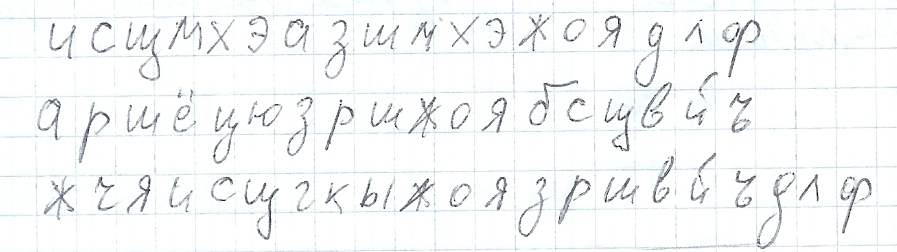 и с щ м х э а з ш м х э ж о я д л ф
а р ш ё ц ю з р ш ж о я б с щ в й ъ
ж ч я и с щ г к ы ж о я з р ш в й ъ д л ф